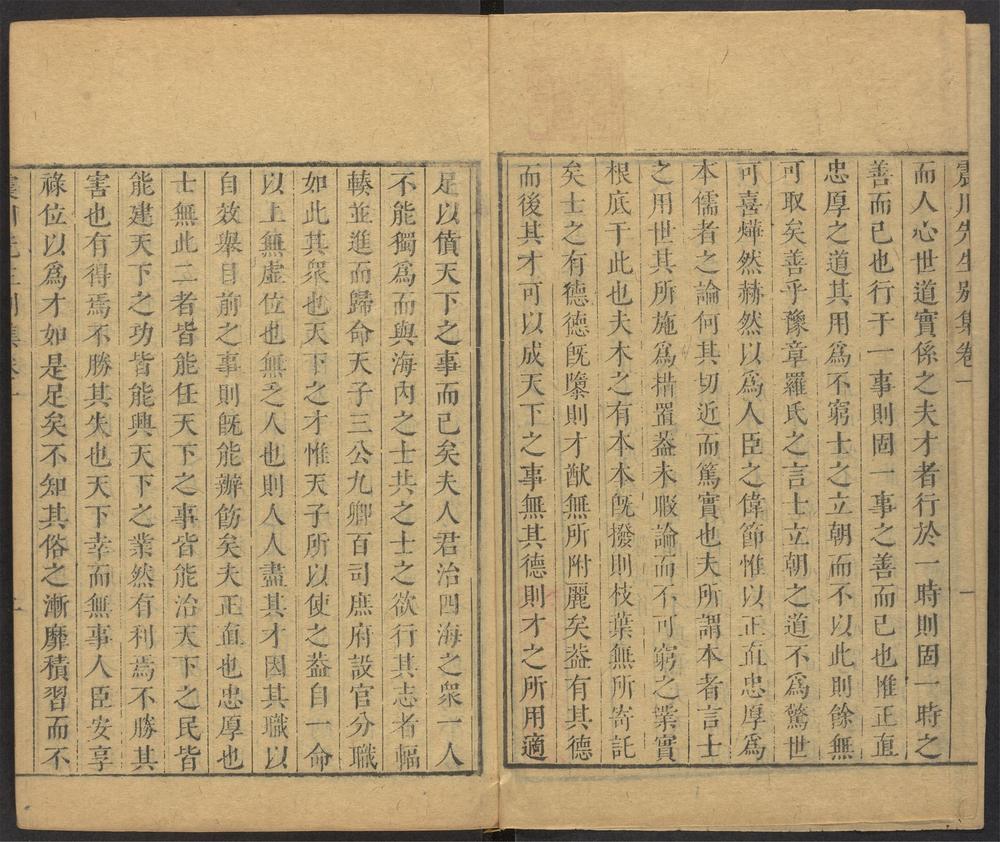 震川先生別集卷一 一
而人心世道實係之夫才者行於一時則固一時之
善而已也行于一事則固一事之善而已也惟正直
忠厚之道其用爲不窮士之立朝而不以此則餘無
可取矣善乎豫章羅氏之言士立朝之道不爲驚世
可喜燁然赫然以爲人臣之偉節惟以正直忠厚爲
本儒者之論何其切近而篤實也夫所謂本者言士
之用世其所施爲措置葢未暇論而不可窮之業實
根底于此也夫木之有本本旣撥則枝葉無所寄託
矣士之有德德旣隳則才猷無所附麗矣葢有其德
而後其才可以成天下之事無其德則才之所用適
足以僨天下之事而已矣夫人君治四海之衆一人
不能獨爲而與海內之士共之士之欲行其志者輻
輳並進而歸命天子三公九卿百司庶府設官分職
如此其衆也天下之才惟天子所以使之葢自一命
以上無虛位也無乏人也則人人盡其才因其職以
自效舉目前之事則旣能辦飭矣夫正直也忠厚也
士無此二者皆能任天下之事皆能治天下之民皆
能建天下之功皆能興天下之業然有利焉不勝其
害也有得焉不勝其失也天下幸而無事人臣安享
祿位以爲才如是足矣不知其俗之漸靡積習而不